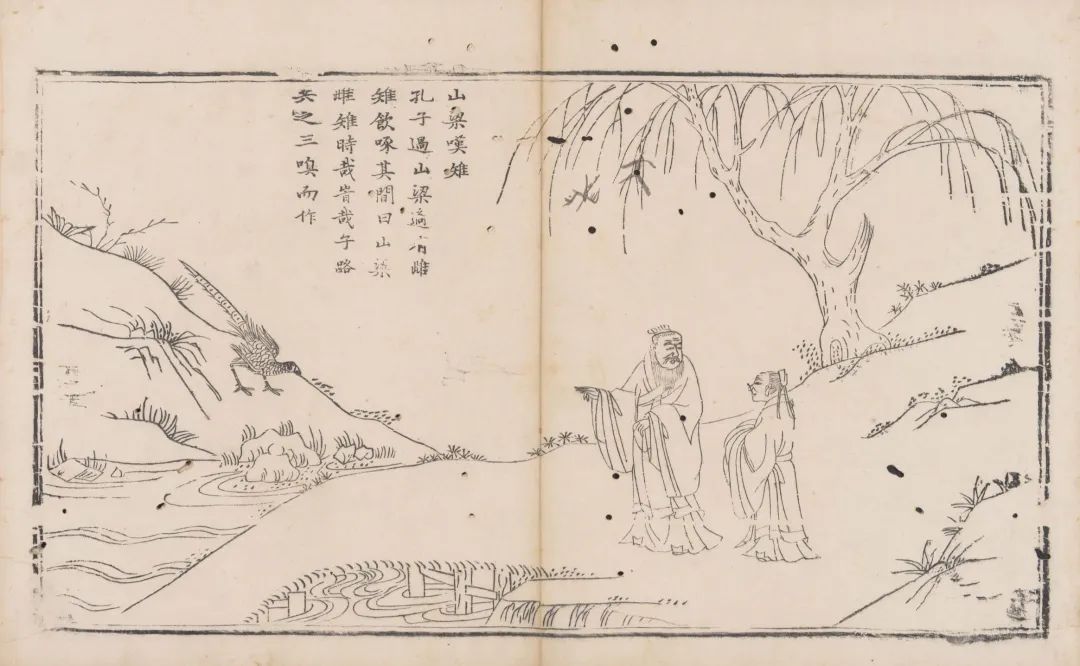 山梁嘆雉
孔子過山梁適有雌
雉飲啄其間曰山梁
雌雉時哉旹哉子路
共之三嗅而作